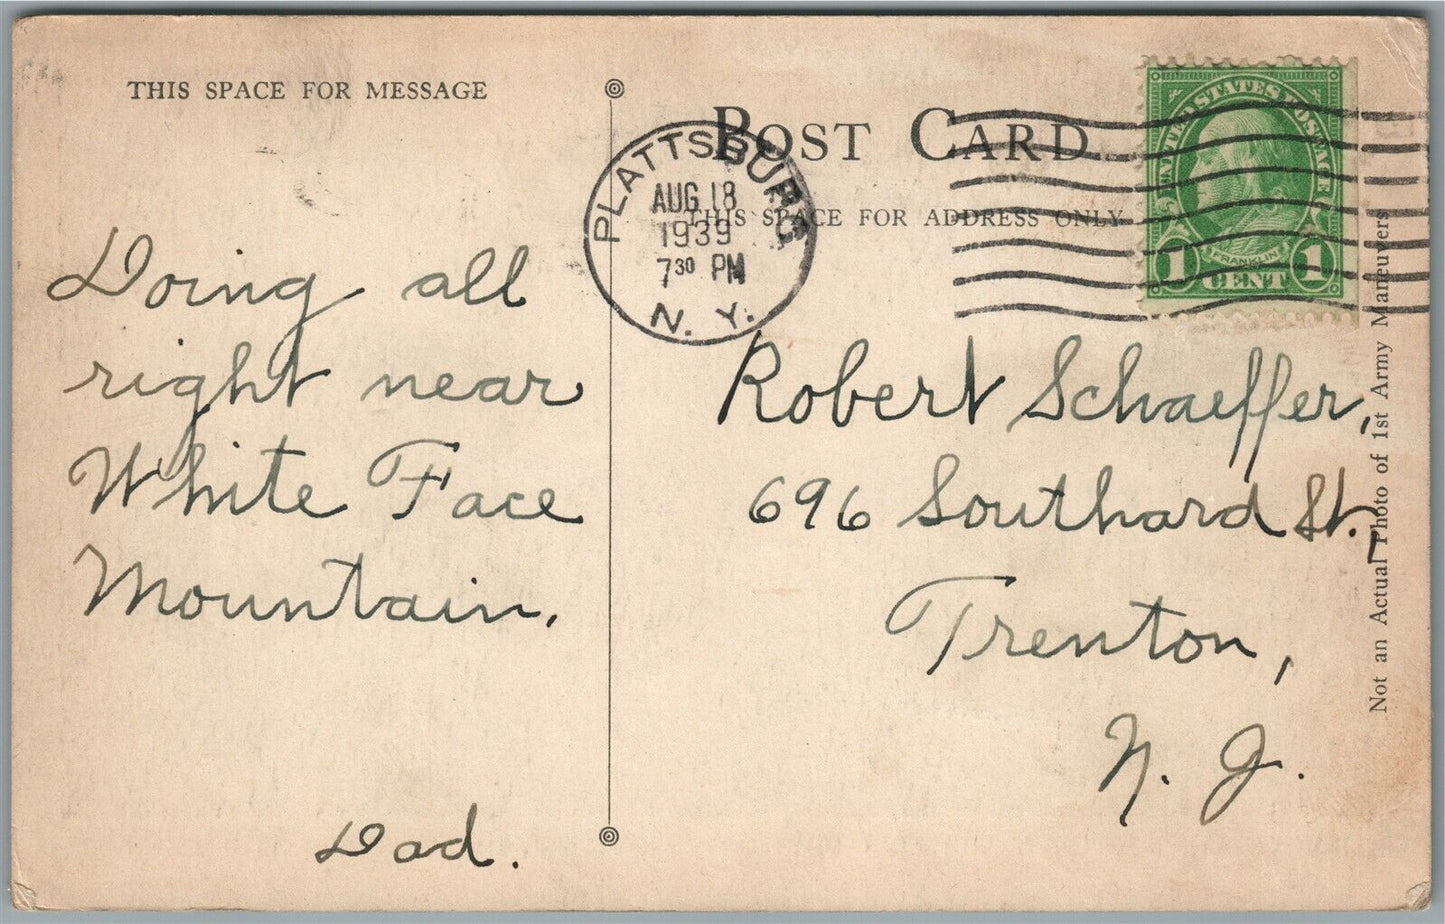 THIS SPACE FOR MESSAGE
Doing all
right near
White Face
Mountain.
Dad.
POST CARD
THIS SPACE FOR ADDRESS ONLY
PLATTSBURG
AUG 18
1939
7 30 PM
N. Y.
UNITED STATES POSTAGE
FRANKLIN
1 CENT 1
Robert Schaeffer,
696 Southard St.,
Trenton,
N. J.
Not an Actual Photo of 1st Army Maneuvers